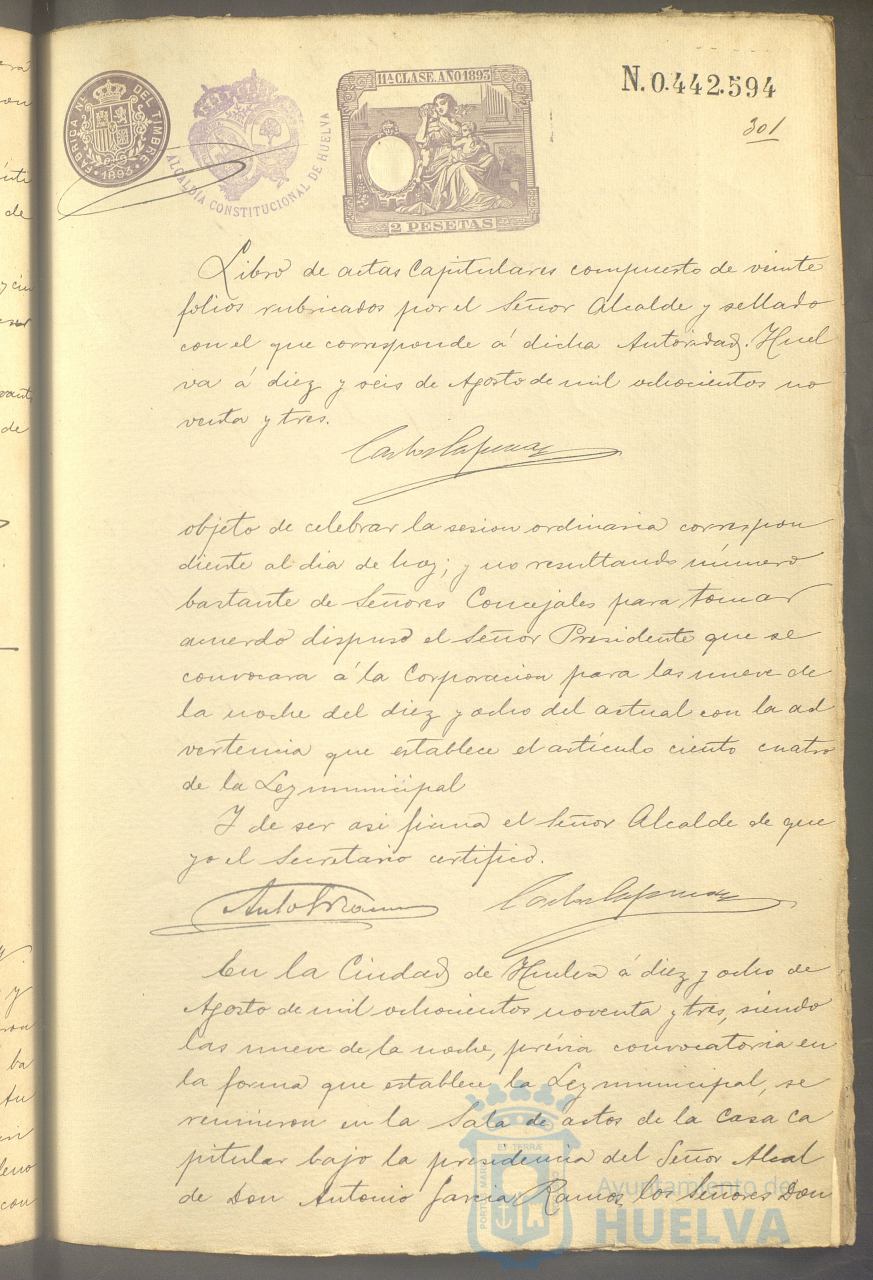 FABRICA NL. DEL TIMBRE
1893
ALCALDÍA CONSTITUCIONAL DE HUELVA
11ª CLASE. AÑO 1893
2 PESETAS
N.0.442.594
301
Libro de actas Capitulares compuesto de veinte
folios rubricados por el Señor Alcalde y sellado
con el que corresponde á dicha Autoridad. Huel
va á diez y seis de Agosto de mil ochocientos no
venta y tres.
objeto de celebrar la sesion ordinaria correspon
diente al dia de hoy; y no resultando número
bastante de Señores Concejales para tomar
acuerdo dispuso el Señor Presidente que se
convocara á la Corporacion para las nueve de
la noche del diez y ocho del actual con la ad
vertencia que establece el artículo ciento cuatro
de la Ley municipal
Y de ser asi firma el Señor Alcalde de que
yo el Secretario certifico.
En la Ciudad de Huelva á diez y ocho de
Agosto de mil ochocientos noventa y tres, siendo
las nueve de la noche, prévia convocatoria en
la forma que establece la Ley municipal, se
reunieron en la Sala de actos de la Casa Ca
pitular bajo la presidencia del Señor Alcal
de Don Antonio Garcia Ramos, los Señores Don
Ayuntamiento de
HUELVA